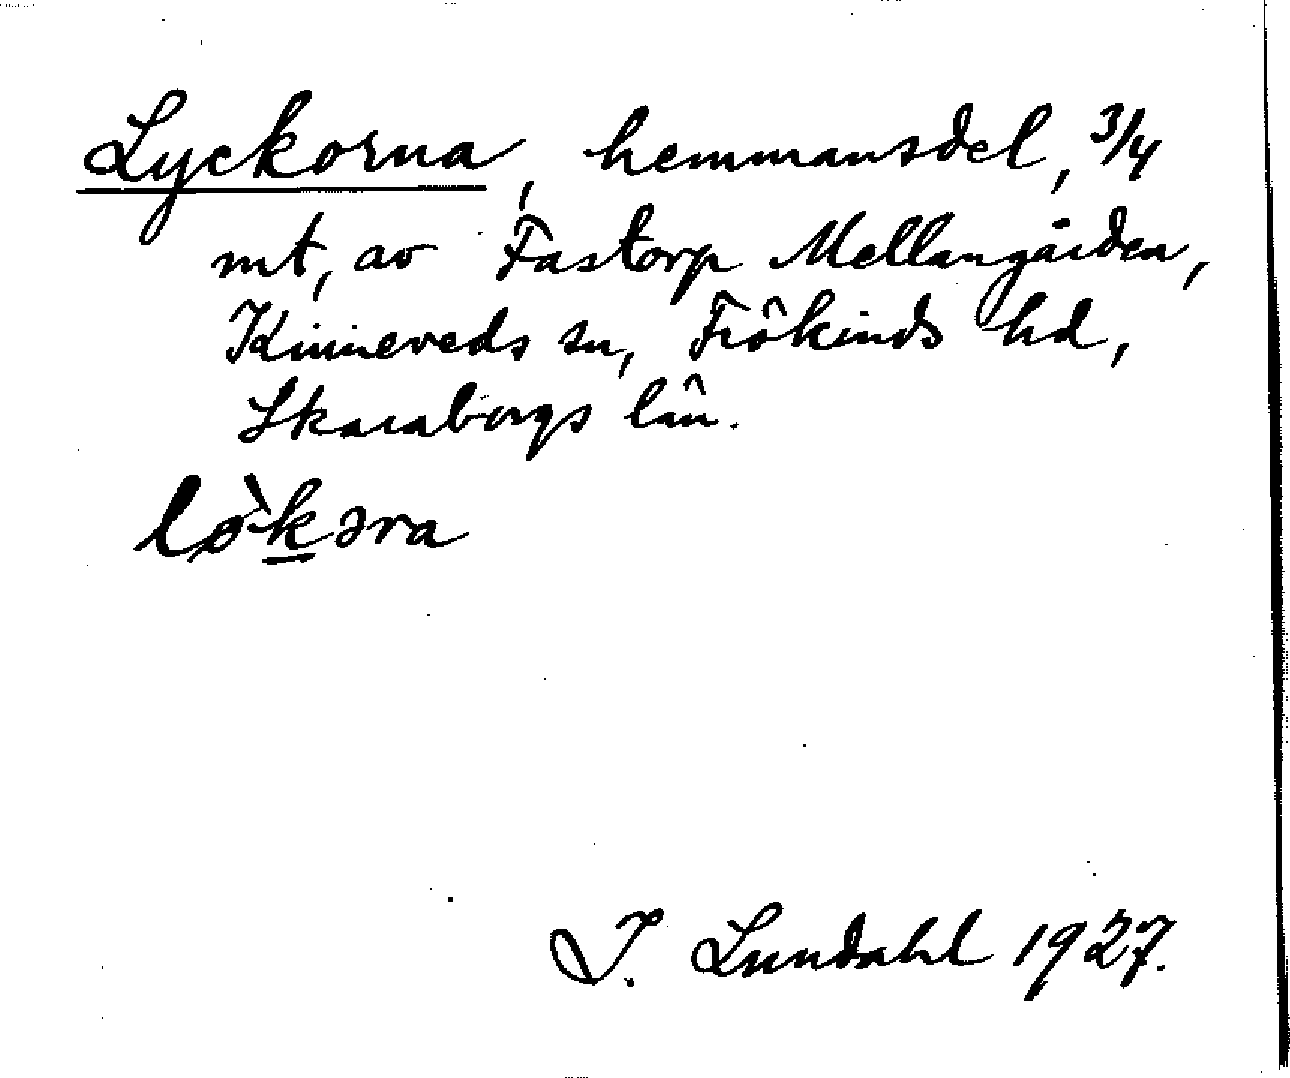 Lyckorna, hemmansdel, 3/4
mt, av Fastorp Mellangården,
Kinneveds sn, Frökinds hd,
Skaraborgs län.
lø̀kəra
I. Lundahl 1927.